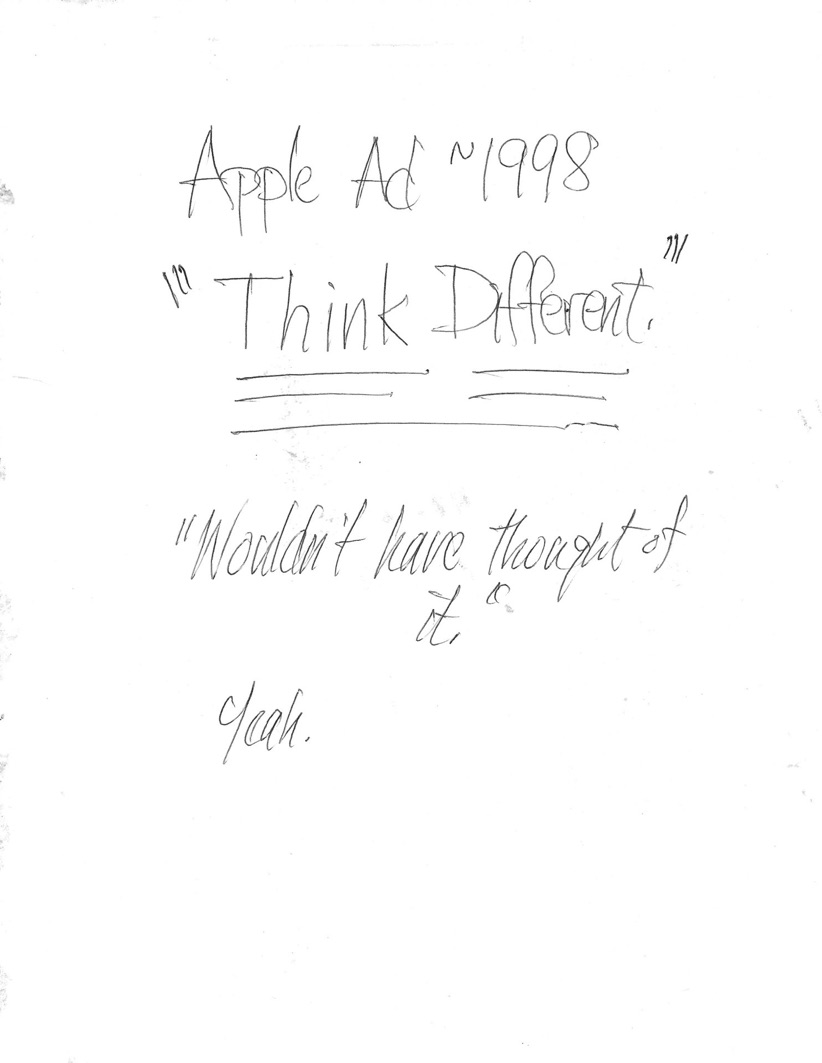 Apple Ad ~1998
"'Think Different.'"
"Wouldn't have thought of
it."
Yeah.